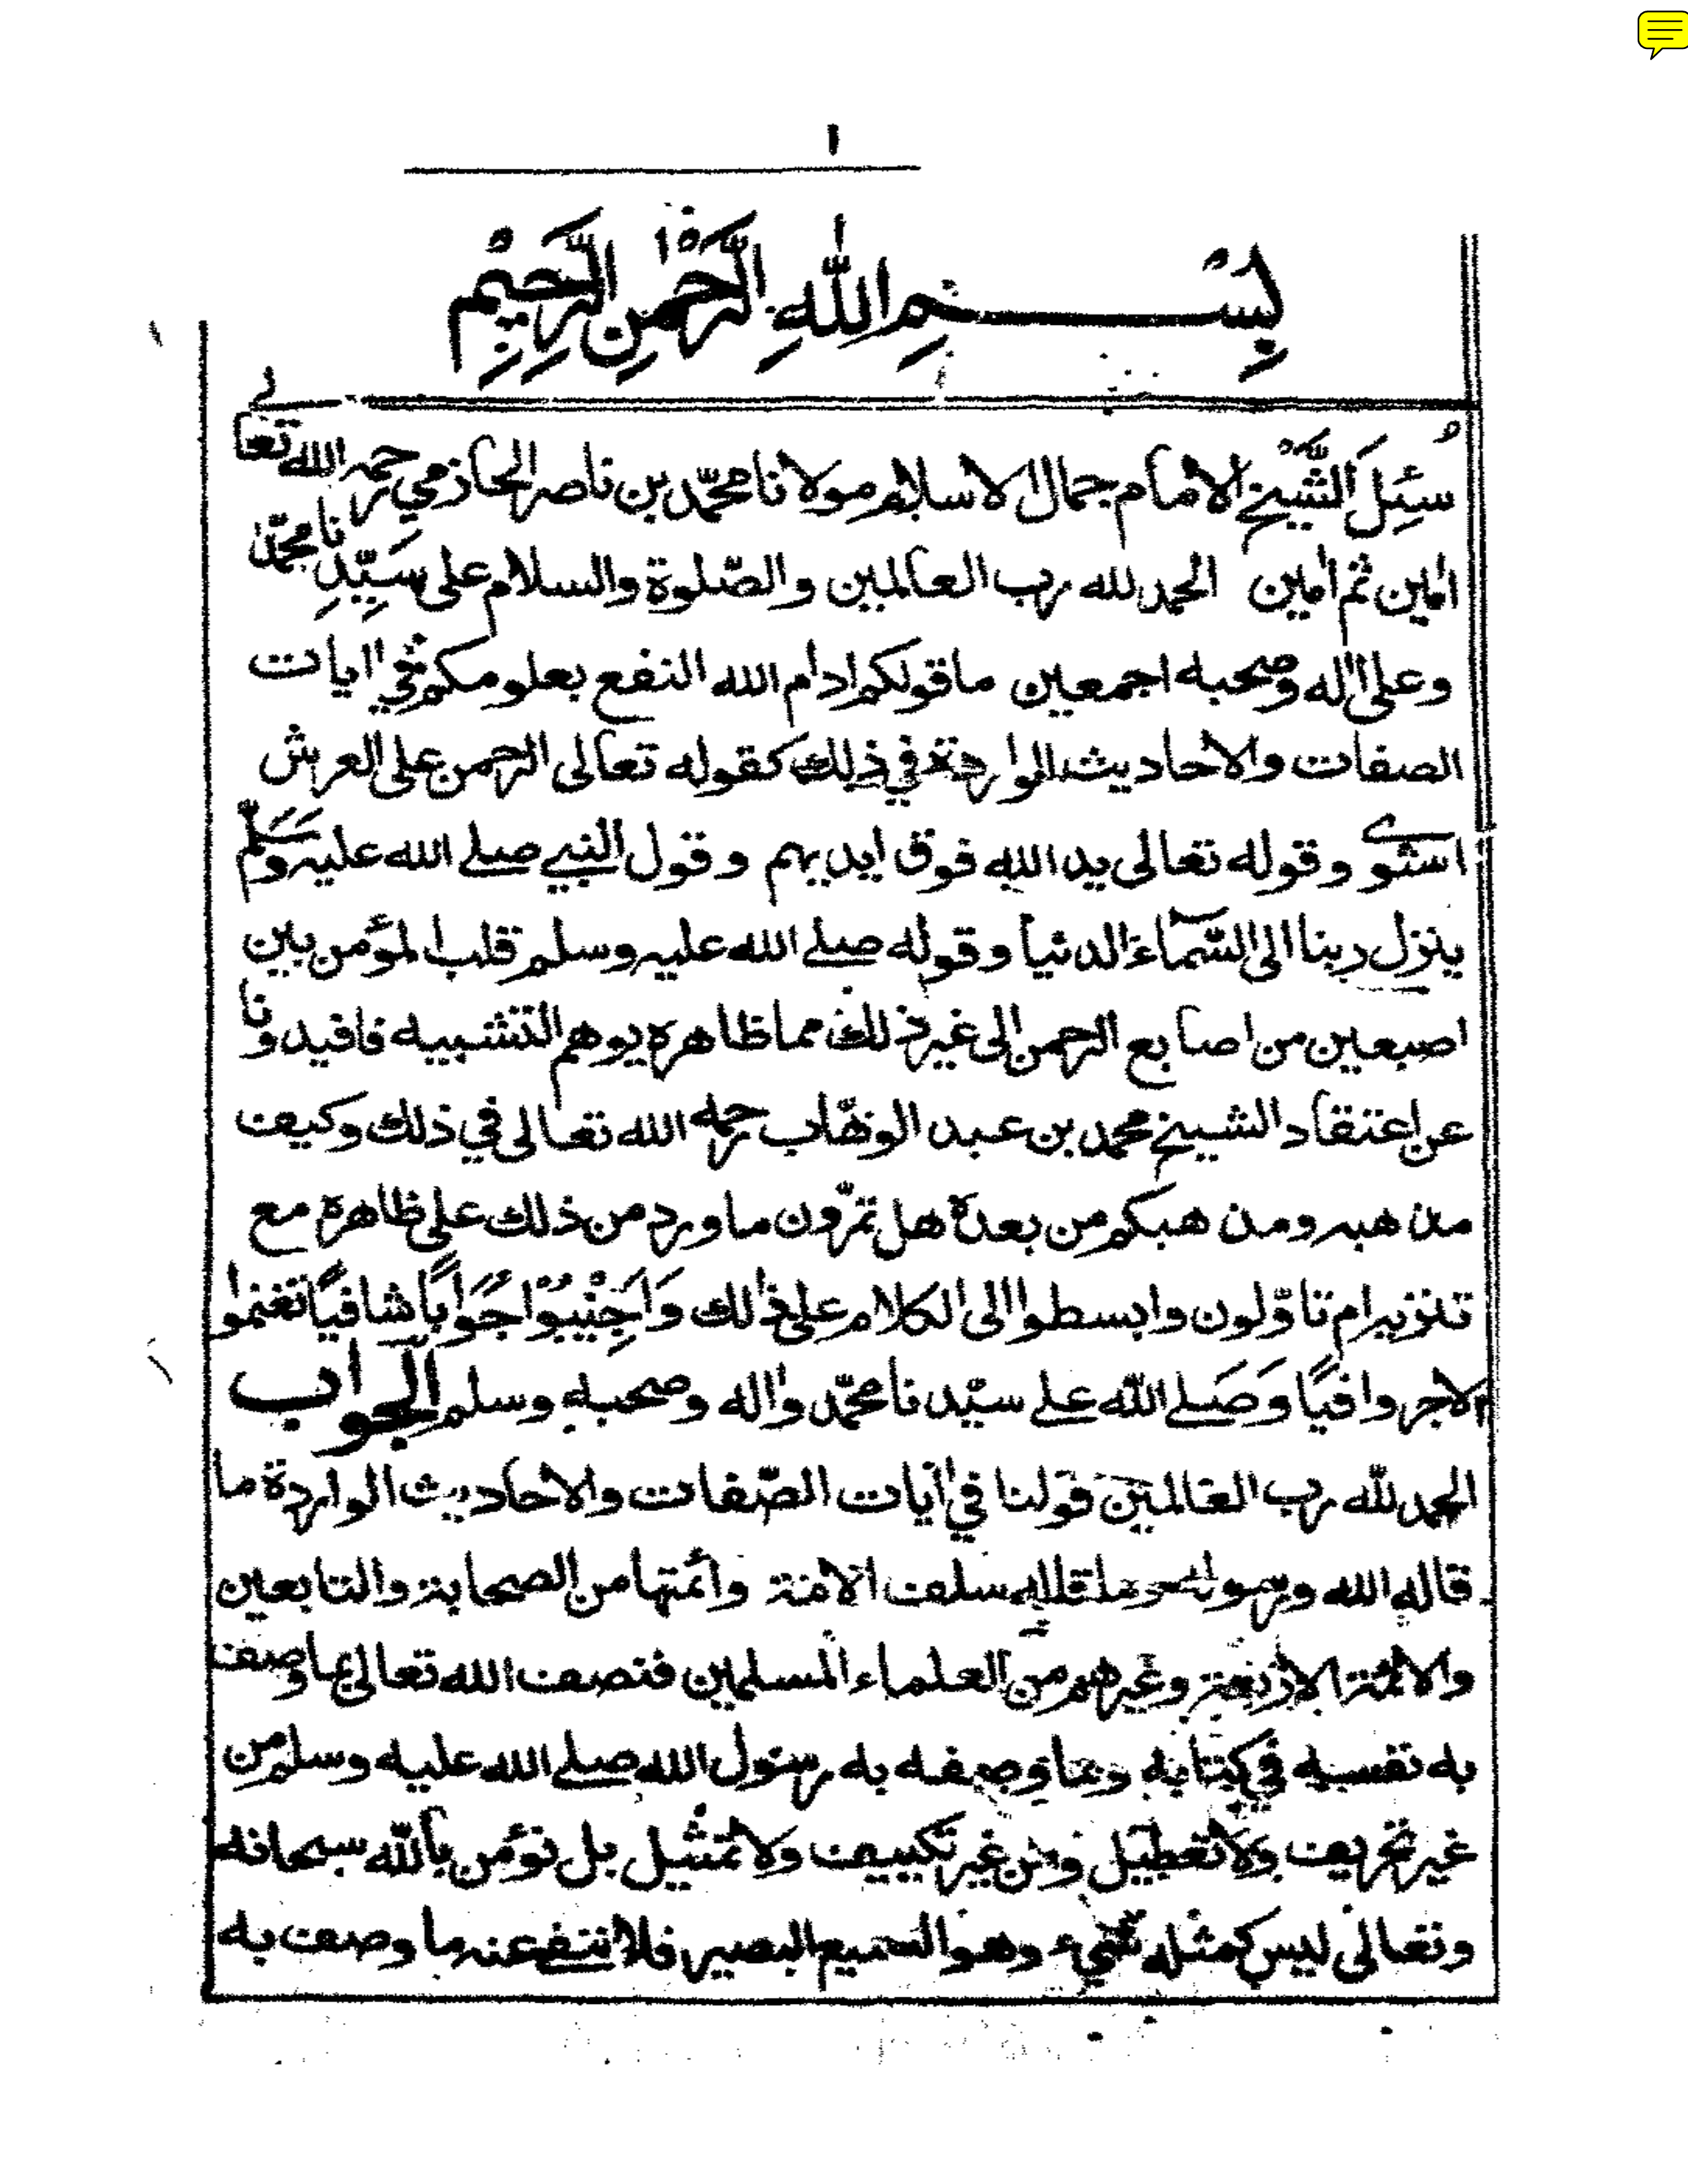 ١
بِسْمِ اللّٰهِ الرَّحْمٰنِ الرَّحِيْمِ
سُئِلَ الشَّيْخ الامام جمال الاسلام مولانا محمّد بن ناصر الحازمي رحمه الله تعالى
اٰمين ثم اٰمين الحمد لله رب العالمين والصّلوة والسلام على سَيِّدِنا محمّد
وعلى اٰله وصحبه اجمعين ما قولكم ادام الله النفع بعلومكم في اٰيات
الصفات والاحاديث الواردة في ذلك كقوله تعالى الرحمن على العرش
استوى وقوله تعالى يد الله فوق ايديهم وقول النبي صلى الله عليه وَسَلَّم
ينزل ربنا الى السَّمَاءَ الدنيا وقوله صلى الله عليه وسلم قلب المؤمن بين
اصبعين من اصابع الرحمن الى غير ذلك مما ظاهره يوهم التشبيه فافيدونا
عن اعتقاد الشيخ محمد بن عبد الوهّاب رحمه الله تعالى في ذلك وكيف
مذهبه ومذهبكم من بعده هل تمرّون ما ورد من ذلك على ظاهره مع
تنزيه ام تاوّلون وابسطوا الى الكلام على ذلك وَاَجِيْبُوْا جَوَابًا شافيًا تغنموا
الاجر وافيًا وَصَلى اللّه على سيّدنا محمّد واٰله وصحبه وسلم الجواب
الحمد للّه رب العالمين قولنا في اٰيات الصّفات والاحاديث الواردة ما
قاله الله ورسوله وما قاله سلف الامة وائمتها من الصحابة والتابعين
والائمة الاربعة وغيرهم من العلماء المسلمين فنصف الله تعالى بما وصف
به نفسه في كتابه وبما وصفه به رسول الله صلى الله عليه وسلم من
غير تحريف ولا تعطيل ومن غير تكييف ولا تمثيل بل نؤمن باللّه سبحانه
وتعالى ليس كمثله شيء وهو السميع البصير فلا ننفي عنه ما وصف به